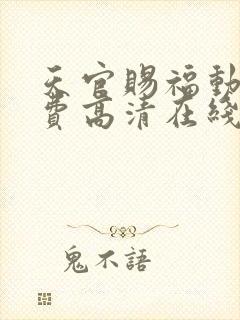 天官賜福動
費高清在綫
鬼不語